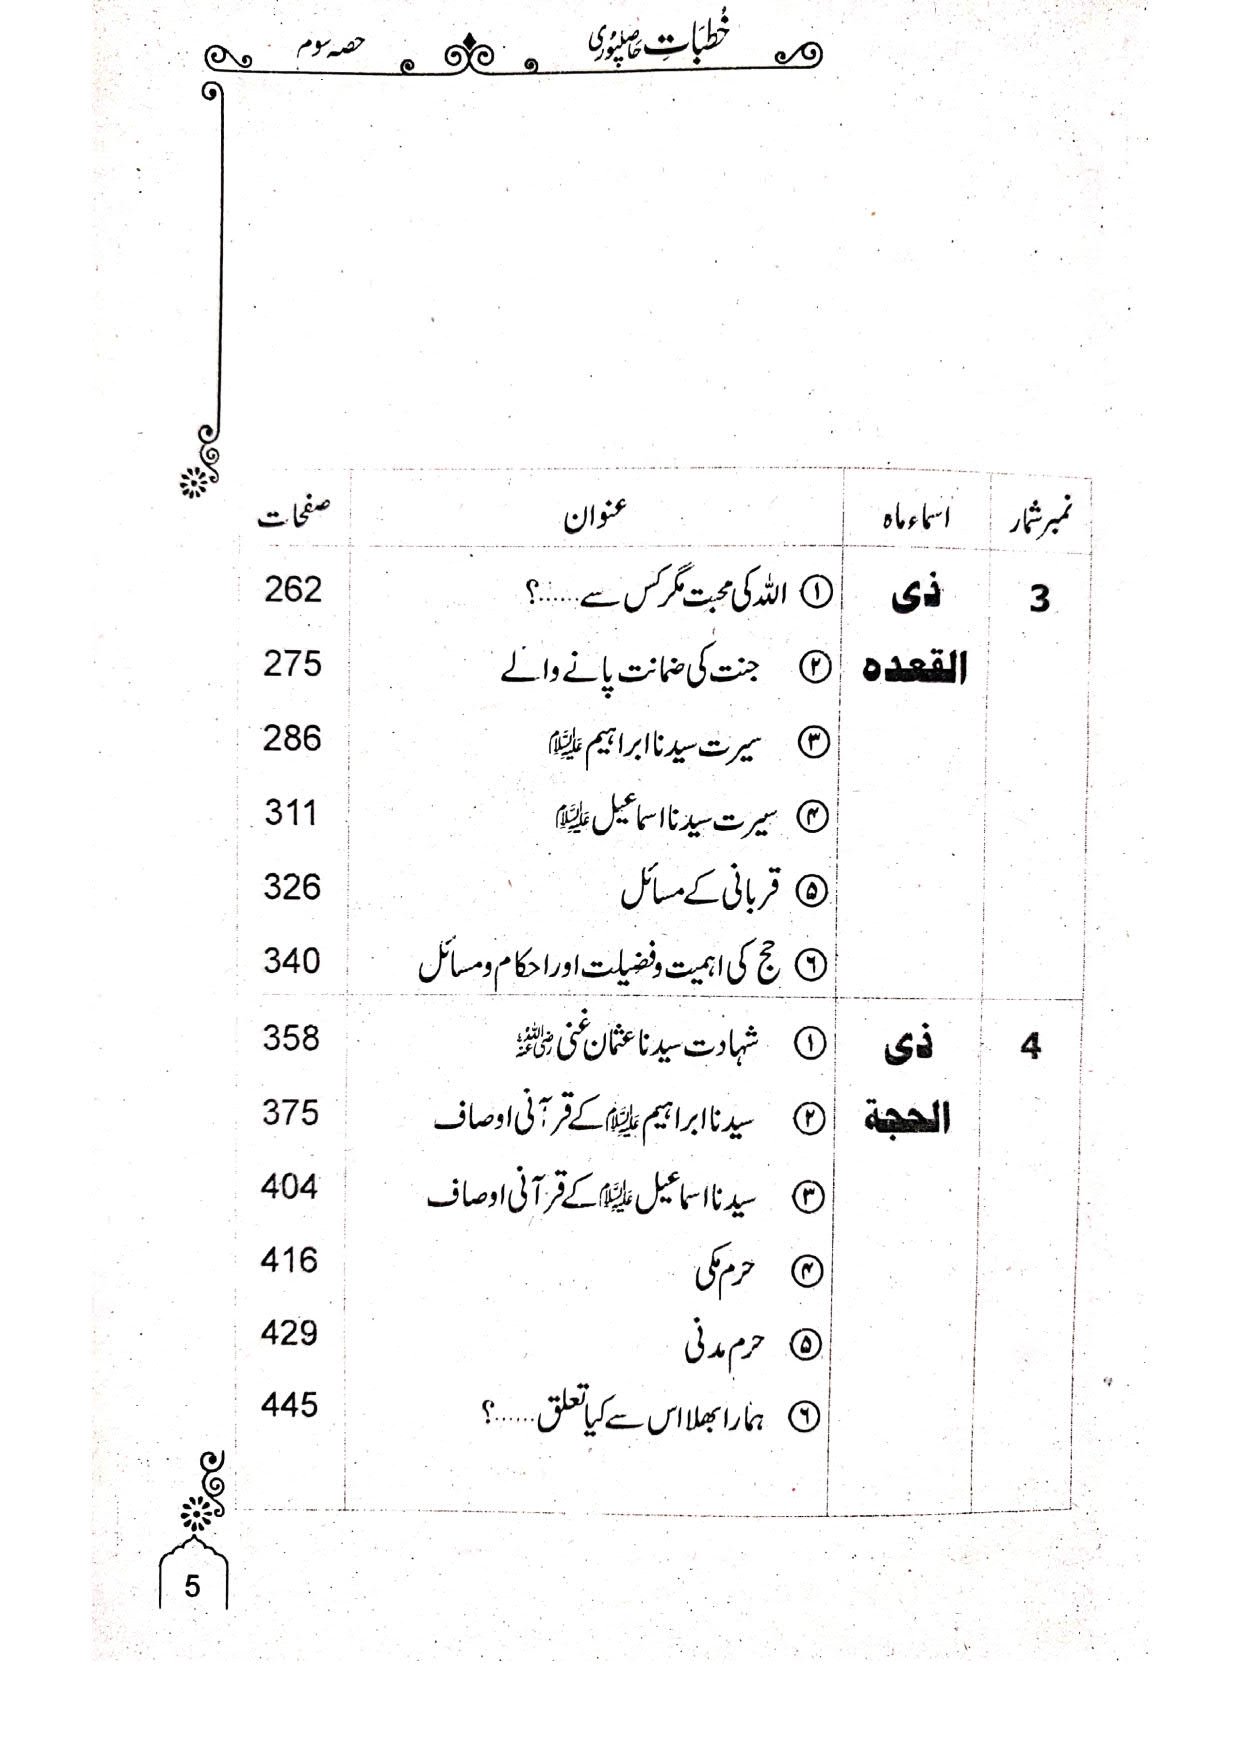 خُطبَاتِ حاصلپوری حصہ سوم
نمبر شمار اسماء ماہ عنوان صفحات
3 ذی ① اللہ کی محبت مگر کس سے......؟ 262
القعدہ ② جنت کی ضمانت پانے والے 275
③ سیرت سیدنا ابراہیم علیہ السلام 286
④ سیرت سیدنا اسماعیل علیہ السلام 311
⑤ قربانی کے مسائل 326
⑥ حج کی اہمیت وفضیلت اور احکام ومسائل 340
4 ذی ① شہادت سیدنا عثمان غنی رضی اللہ عنہ 358
الحجة ② سیدنا ابراہیم علیہ السلام کے قرآنی اوصاف 375
③ سیدنا اسماعیل علیہ السلام کے قرآنی اوصاف 404
④ حرم مکی 416
⑤ حرم مدنی 429
⑥ ہمارا بھلا اس سے کیا تعلق......؟ 445
5